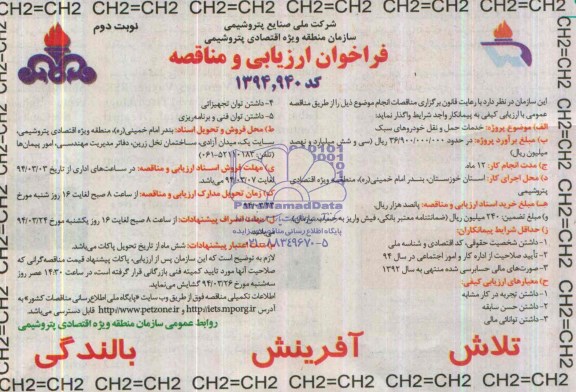 CH2=CH2 CH2=CH2 CH2=CH2 CH2=CH2 CH2=CH2 CH2=CH2 CH2=CH2
نوبت دوم
شرکت ملی صنایع پتروشیمی
سازمان منطقه ویژه اقتصادی پتروشیمی
فراخوان ارزیابی و مناقصه
کد ۱۳۹۴,۹۴۰
این سازمان در نظر دارد با رعایت قانون برگزاری مناقصات انجام موضوع ذیل را از طریق مناقصه
عمومی با ارزیابی کیفی به پیمانکار واجد شرایط واگذار نماید:
الف) موضوع پروژه: خدمات حمل و نقل خودروهای سبک
ب) مبلغ برآورد پروژه: در حدود ۳۶/۹۰۰/۰۰۰/۰۰۰ ریال (سی و شش میلیارد و نهصد
میلیون ریال)
ج) مدت انجام کار: ۱۲ ماه
د) محل اجرای کار: استان خوزستان، بندر امام خمینی(ره)، منطقه ویژه اقتصادی
پتروشیمی
ه) مبلغ خرید اسناد ارزیابی و مناقصه: پانصد هزار ریال
و) مبلغ تضمین: ۲۴۰ میلیون ریال (ضمانتنامه معتبر بانکی، فیش واریز به حساب سازمان)
ز) حداقل شرایط پیمانکاران:
۱- داشتن شخصیت حقوقی، کد اقتصادی و شناسه ملی
۲- تأیید صلاحیت از اداره کار و امور اجتماعی در سال ۹۴
۳- صورت‌های مالی حسابرسی شده منتهی به سال ۱۳۹۲
ح) معیارهای ارزیابی کیفی:
۱- داشتن تجربه در کار مشابه
۲- داشتن حسن سابقه
۳- داشتن توانائی مالی
۴- داشتن توان تجهیزاتی
۵- داشتن توان فنی و برنامه‌ریزی
ط) محل فروش و تحویل اسناد: بندر امام خمینی(ره)، منطقه ویژه اقتصادی پتروشیمی،
سایت یک، میدان آزادی، ساختمان نخل زرین، دفاتر مدیریت مهندسی، امور پیمان‌ها
(تلفن: ۵۲۱۱۰۱۸۳-۰۶۱)
ی) مهلت فروش اسناد ارزیابی و مناقصه: در ساعت‌های اداری از تاریخ ۹۴/۰۳/۰۲
لغایت ۹۴/۰۳/۰۷ می‌باشد.
ک) زمان تحویل مدارک ارزیابی و مناقصه: از ساعت ۸ صبح لغایت ۱۶ روز شنبه مورخ
ل) مهلت انصراف پیشنهادات: از ساعت ۸ صبح لغایت ۱۶ روز یکشنبه مورخ ۹۴/۰۳/۲۴
می‌باشد.
م) مدت اعتبار پیشنهادات: شش ماه از تاریخ تحویل پاکات می‌باشد.
لازم به توضیح است که این سازمان پس از ارزیابی، پاکات پیشنهاد قیمت مناقصه‌گرانی که
صلاحیت آنها مورد تایید کمیته فنی بازرگانی قرار گرفته است، در ساعت ۱۴:۳۰ عصر روز
سه‌شنبه مورخ ۹۴/۰۳/۲۶ گشایش می‌نماید.
اطلاعات تکمیلی مناقصه فوق از طریق وب سایت «پایگاه ملی اطلاع‌رسانی مناقصات کشور» به
آدرس http://iets.mporg.ir و http://www.petzone.ir قابل دسترسی می‌باشد.
روابط عمومی سازمان منطقه ویژه اقتصادی پتروشیمی
ParsNamadData
پایگاه اطلاع رسانی مناقصات
۰۲۱-۸۸۳۴۹۶۷۰-۵
تلاش آفرینش بالندگی
CH2=CH2 CH2=CH2 CH2=CH2 CH2=CH2 CH2=CH2 CH2=CH2 CH2=CH2